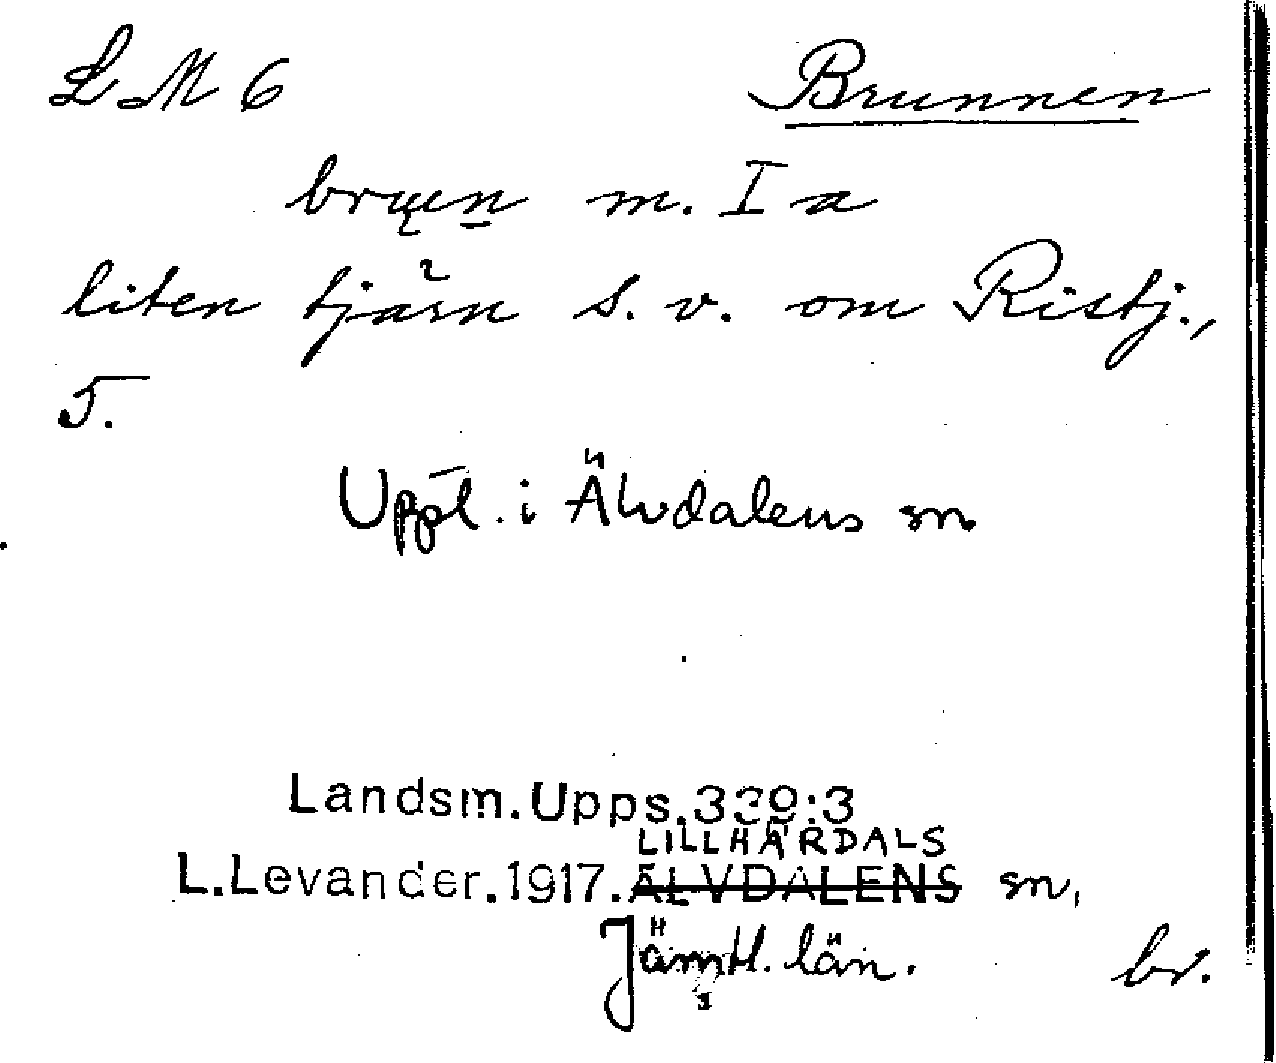 LM 6 Brunnen
m. I a
liten tjärn s. v. om Ristj.,
5.
Uppl. i Älvdalens sn
Landsm.Upps.339:3
LILLHÄRDALS
L.Levander.1917.ÄLVDALENS sn,
Jämtl. län. br.